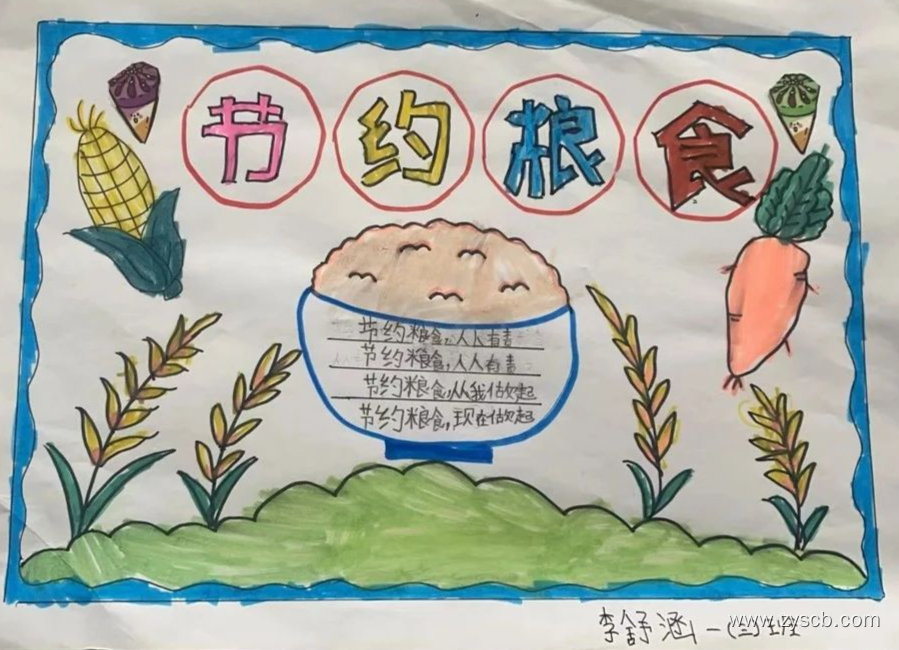 节约粮食
节约粮食,人人有责
节约粮食,人人有责
节约粮食,从我做起
节约粮食,现在做起
李舒涵 一(三)班
www.zyscb.com